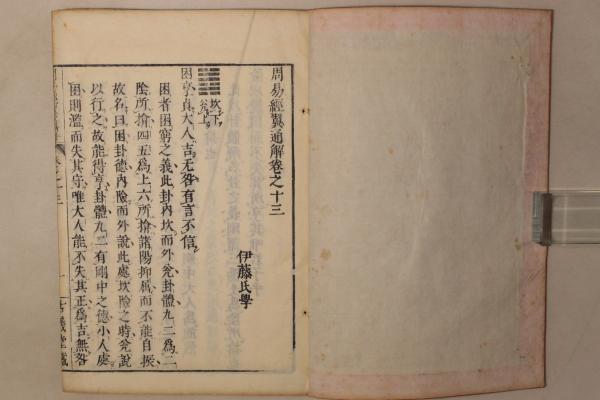 周易經翼通解卷之十三
伊藤氏學
坎下
兌上
困亨貞大人吉无咎有言不信
困者困窮之義此卦內坎而外兌卦體九二爲二
陰所揜四五爲上六所揜諸陽抑揜而不能自振
故名曰困卦德內險而外說此處坎險之時兌說
以行之故能得亨卦體九二有剛中之德小人處
困則濫而失其守唯大人能不失其正爲吉無咎